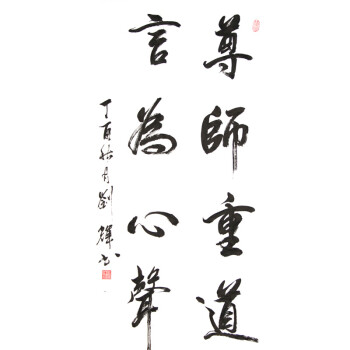 尊師重道
言為心聲
丁酉秋月劉輝书